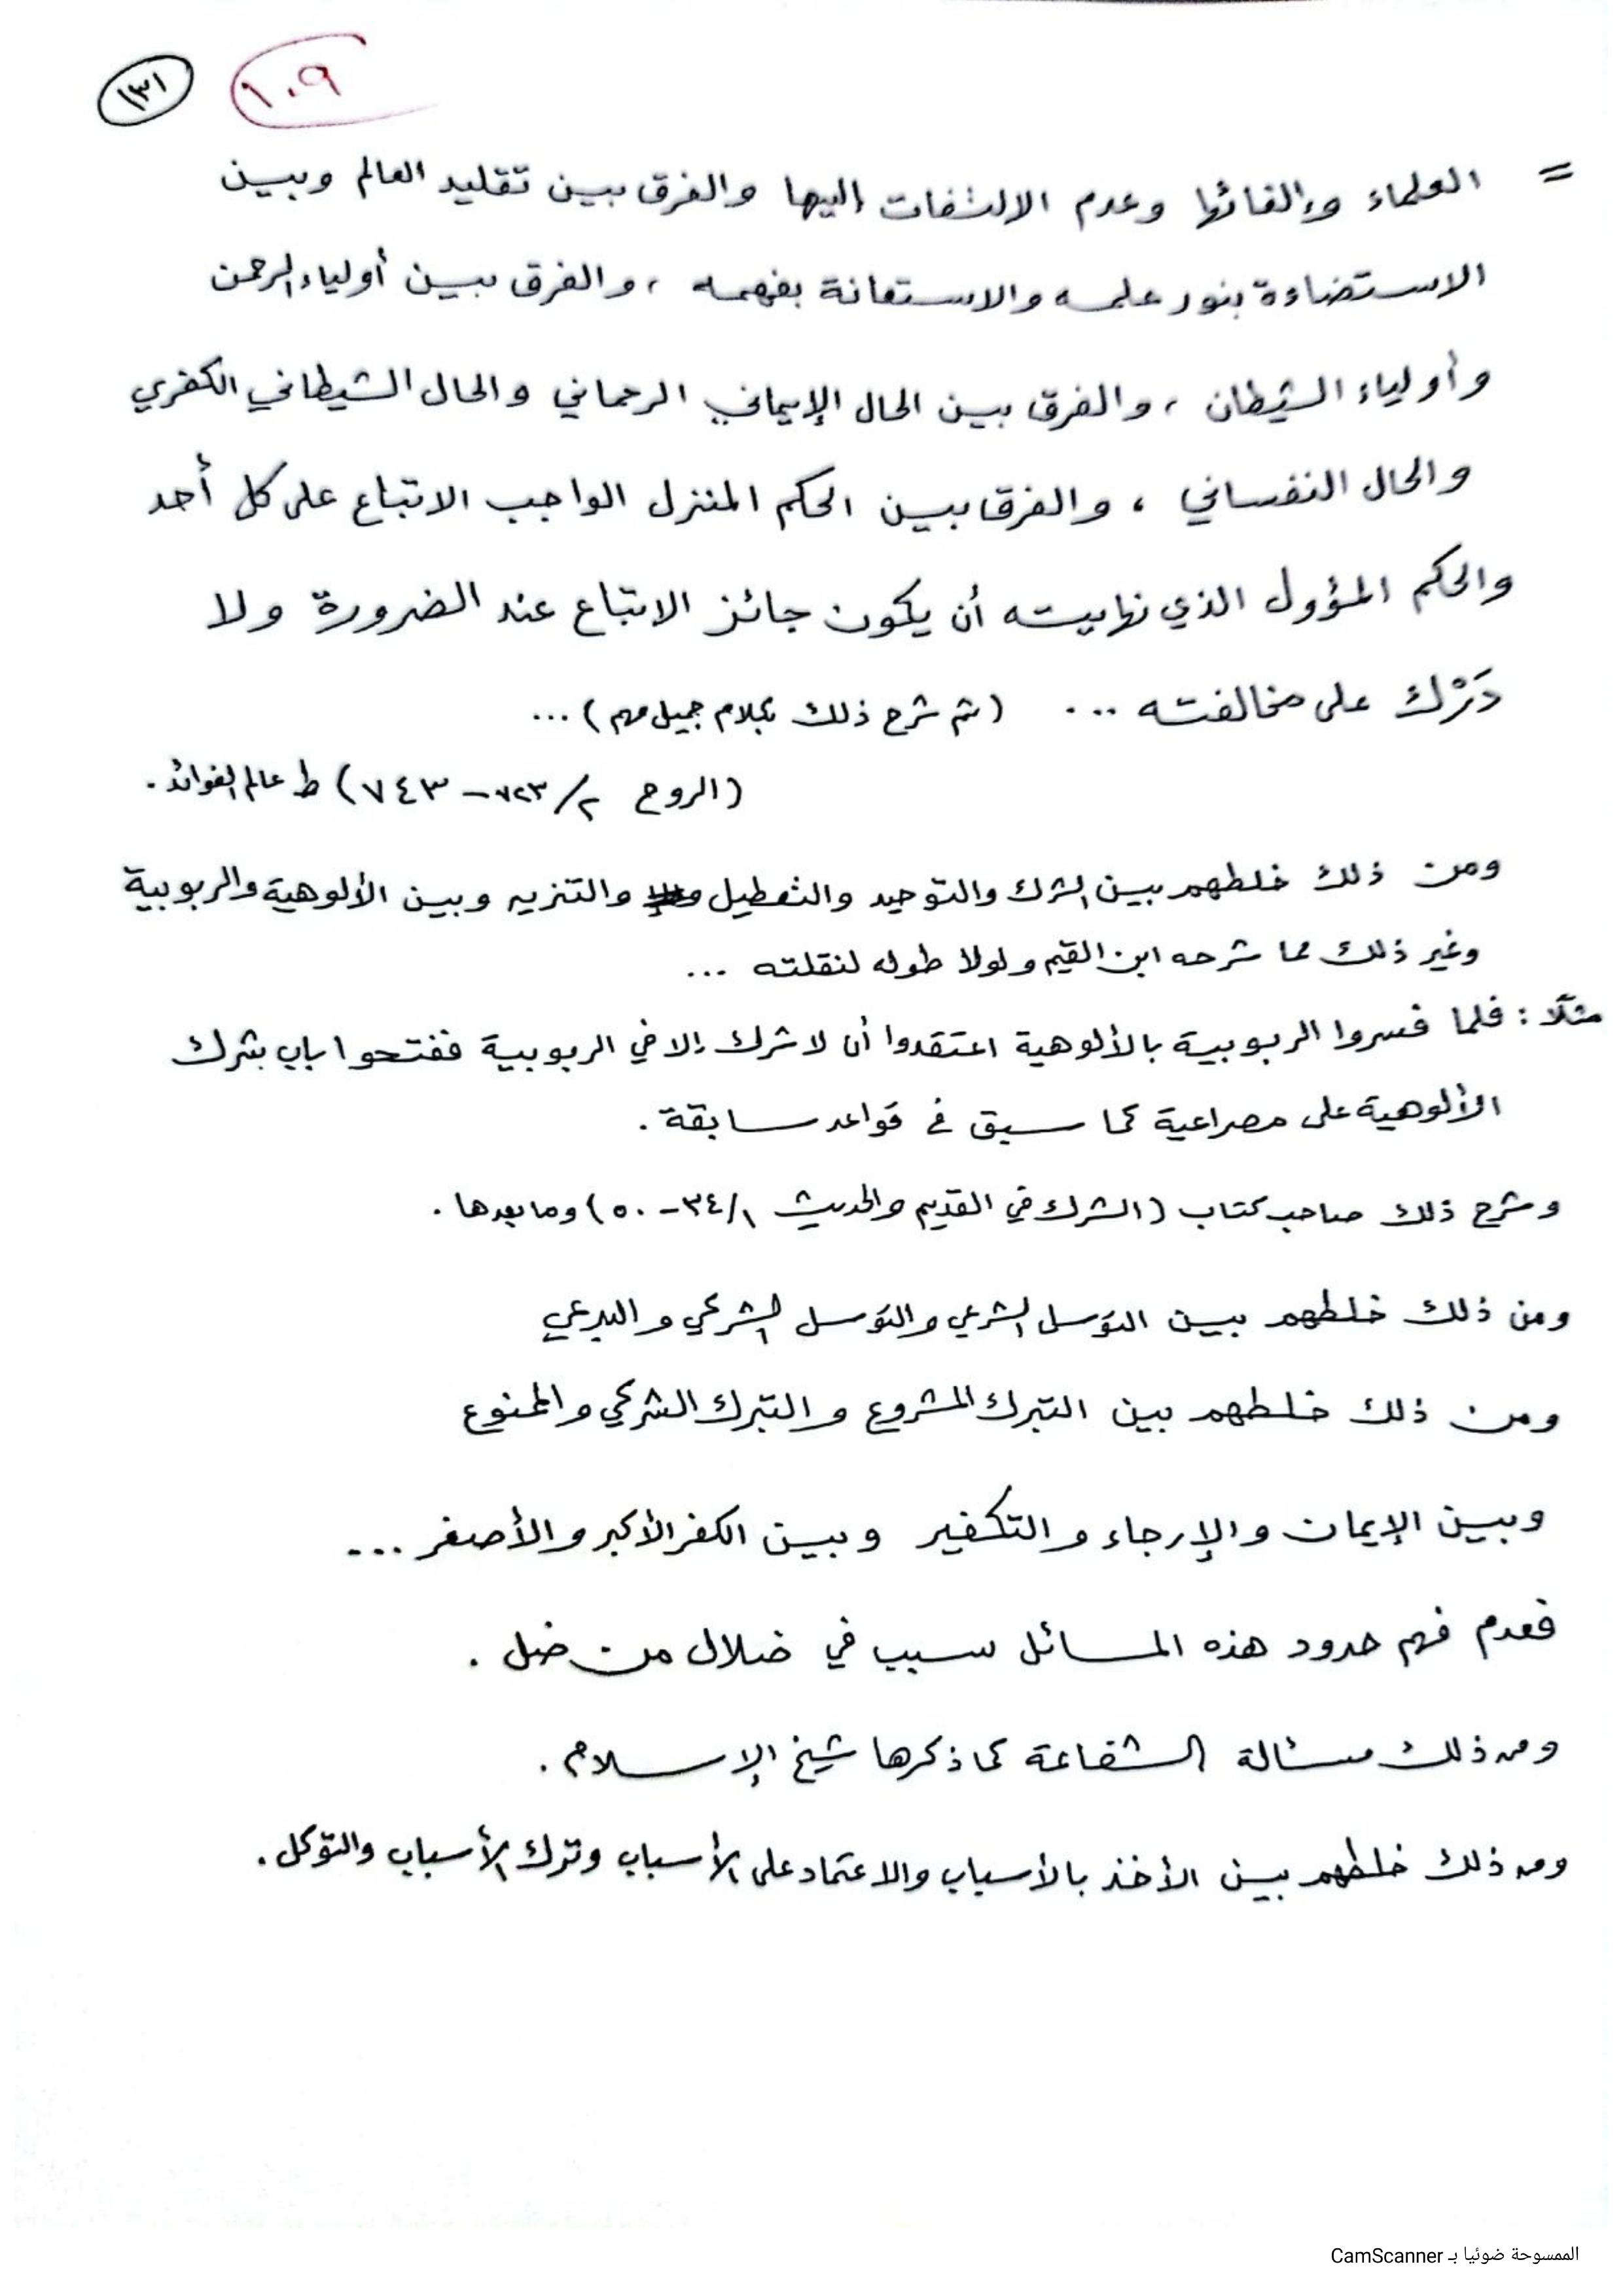 ١٣١ ١٠٩
= العلماء وإلغائها وعدم الالتفات إليها والفرق بين تقليد العالم وبين
الاستضاءة بنور علمه والاستعانة بفهمه ، والفرق بين أولياء الرحمن
وأولياء الشيطان ، والفرق بين الحال الإيماني الرحماني والحال الشيطاني الكفري
والحال النفساني ، والفرق بين الحكم المنزل الواجب الاتباع على كل أحد
والحكم المؤول الذي نهايته أن يكون جائز الاتباع عند الضرورة ولا
دَرْك على مخالفته ... (ثم شرح ذلك بكلام جميل مهم) ...
(الروح ٢/ ٧٢٣ - ٧٤٣) ط عالم الفوائد .
ومن ذلك خلطهم بين الشرك والتوحيد والتعطيل والتنزيه وبين الألوهية والربوبية
وغير ذلك مما شرحه ابن القيم ولولا طوله لنقلته ...
مثلاً : فلما فسروا الربوبية بالألوهية اعتقدوا أن لا شرك إلا في الربوبية ففتحوا باب شرك
الألوهية على مصراعية كما سبق في قواعد سابقة .
وشرح ذلك صاحب كتاب (الشرك في القديم والحديث ١/ ٣٤ - ٥٠) وما بعدها .
ومن ذلك خلطهم بين التوسل الشرعي والتوسل الشركي والبدعي
ومن ذلك خلطهم بين التبرك المشروع والتبرك الشركي والممنوع
وبين الإيمان والإرجاء والتكفير وبين الكفر الأكبر والأصغر ...
فعدم فهم حدود هذه المسائل سبب في ضلال من ضل .
ومن ذلك مسألة الشفاعة كما ذكرها شيخ الإسلام .
ومن ذلك خلطهم بين الأخذ بالأسباب والاعتماد على الأسباب وترك الأسباب والتوكل .
الممسوحة ضوئيا بـ CamScanner